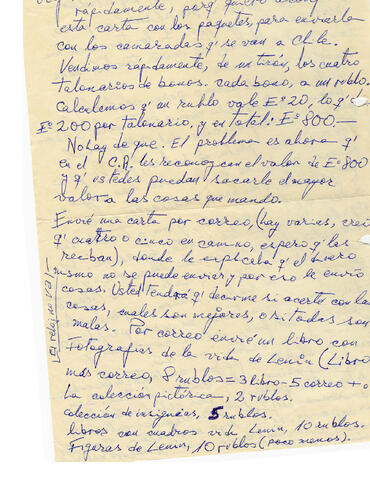 rápidamente, porq' quiero
esta carta con los paquetes, para enviarla
con los camaradas q' se van a Chile.
Vendimos rápidamente, de un tirón, los cuatro
talonarios de bonos. Cada bono, a un rublo.
Calculemos q' un rublo vale Eº 20, lo q' d
Eº 200 por talonario, y en total: Eº 800.—
No hay de que. El problema es ahora q'
en el C.R. les reconozcan el valor de Eº 800
y q' ustedes puedan sacarle el mayor
valor a las cosas que mando.
Envié una carta por correo, (hay varias, creo
q' cuatro o cinco en camino, espero q' las
reciban), donde le explicaba q' el dinero
mismo no se puede enviar, y por eso le envío
cosas. Usted tendrá q' decirme si acerté con las
cosas, cuales son mejores, o si todas son
malas. Por correo envié un libro con
Fotografías de la vida de Lenin (Libro
más correo, 8 rublos = 3 libro - 5 correo +
La colección pictórica, 2 rublos.
colección de insignias, 5 rublos.
libros con cuadros vida Lenin, 10 rublos.
Figuras de Lenin, 10 rublos (poco menos).
El reloj no va